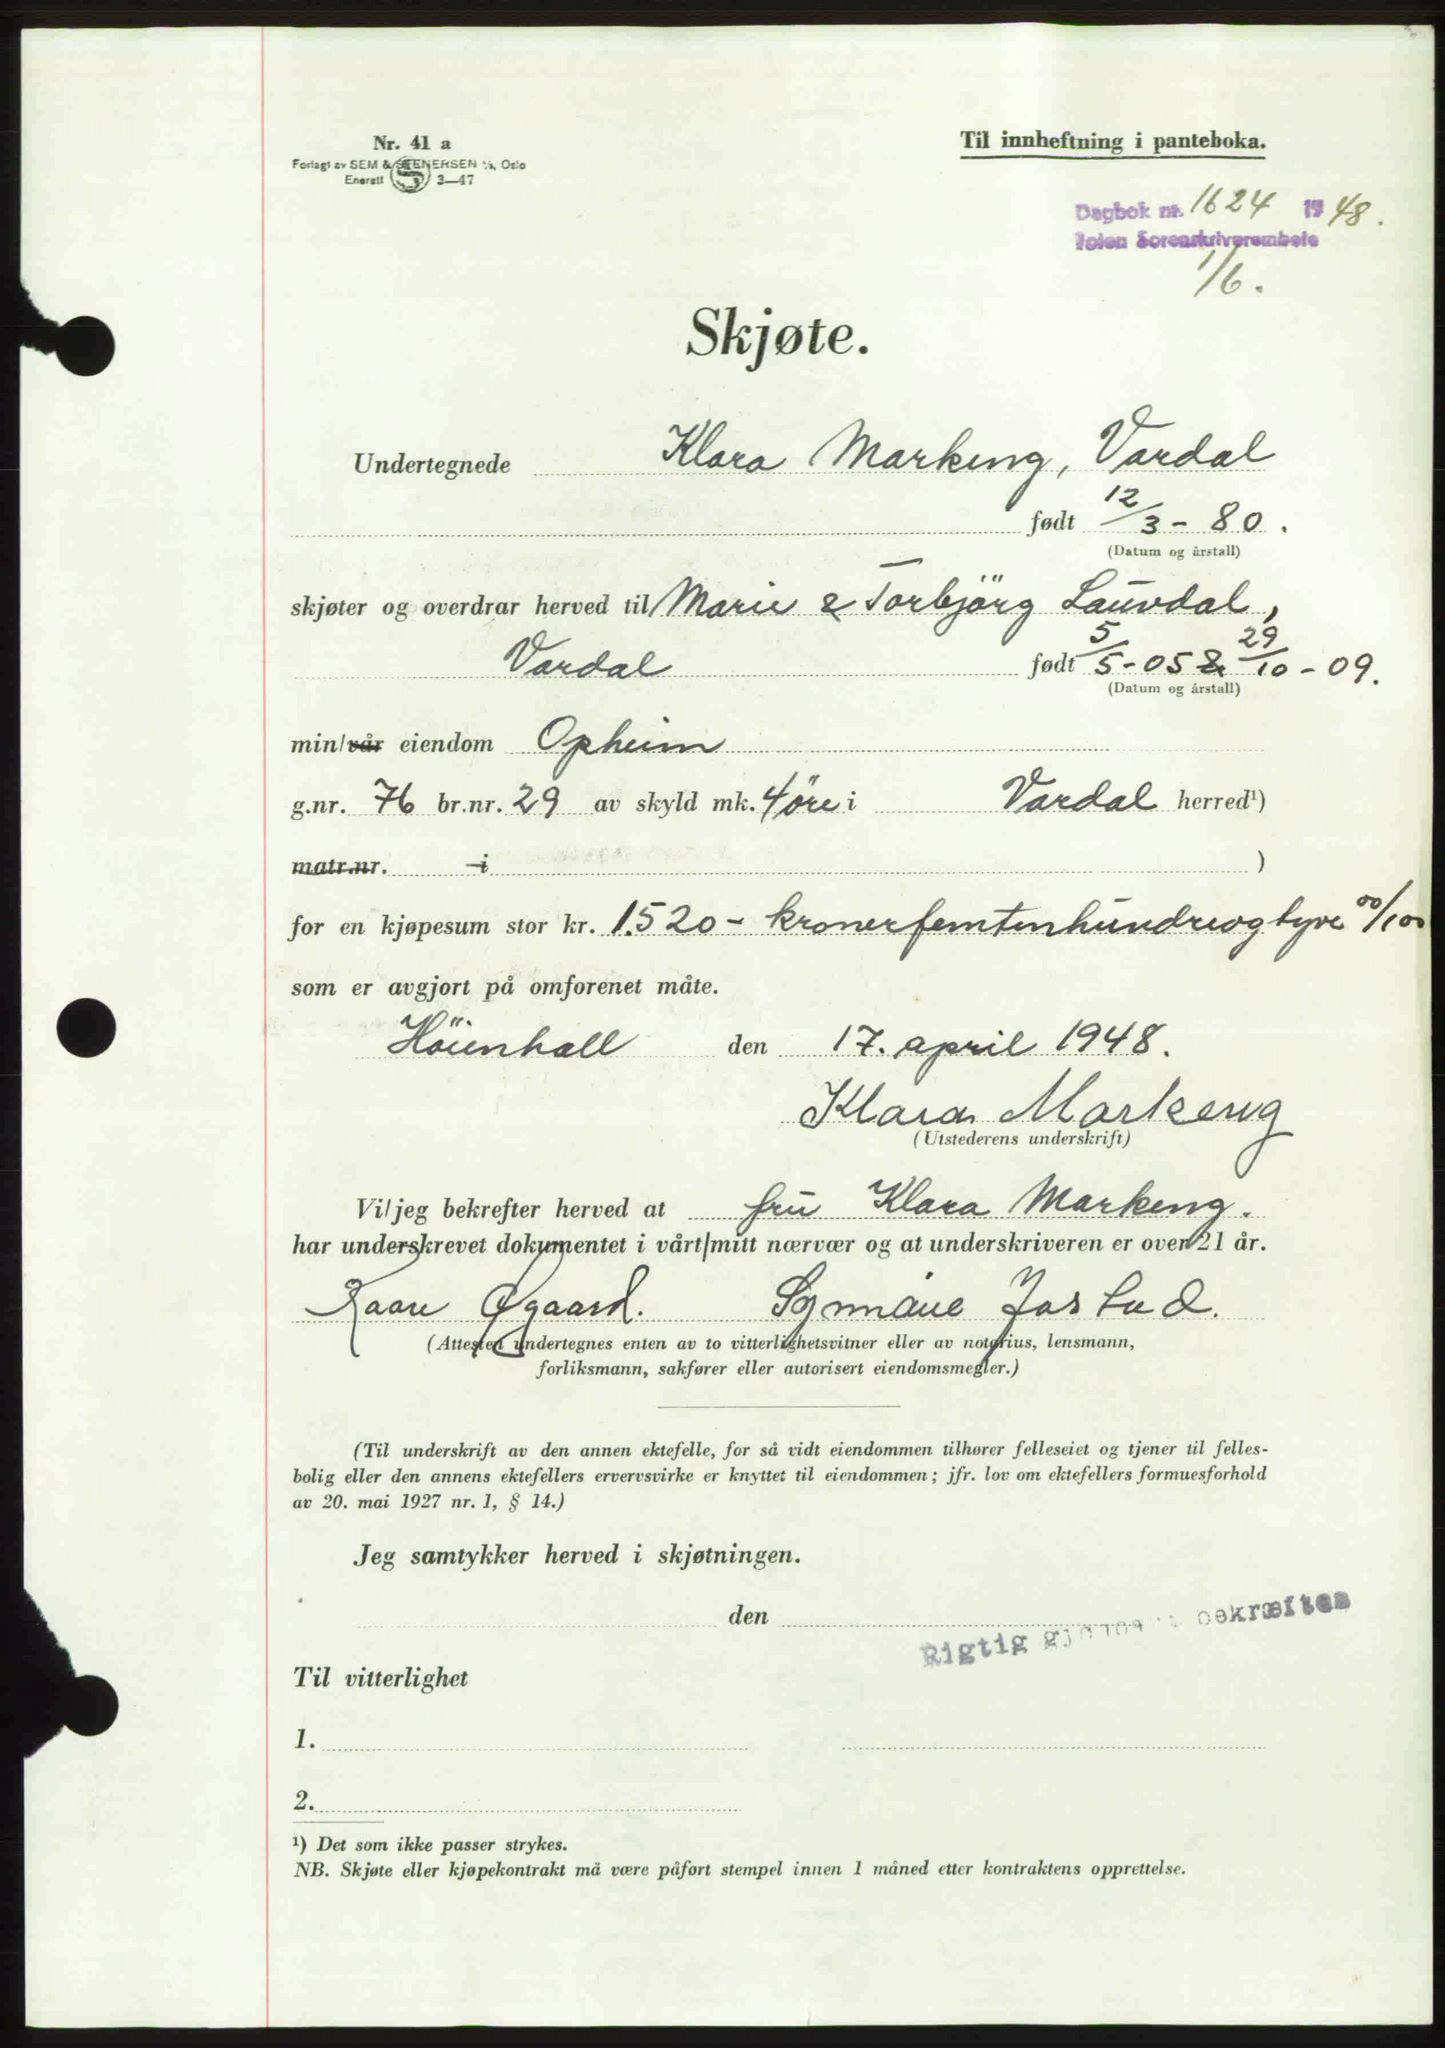 Nr. 41 a
Forlagt av SEM & STENERSEN A/S, Oslo
Enerett 3—47
Til innheftning i panteboka.
Dagbok nr. 1624 1948.
Toten Sorenskriverembete
1/6.
Skjøte.
Undertegnede Klara Markeng, Vardal
født 12/3 - 80.
(Datum og årstall)
skjøter og overdrar herved til Marie & Torbjörg Lauvdal,
Vardal født 5/5 - 05 & 29/10 - 09.
(Datum og årstall)
min/vår eiendom Opheim
g.nr. 76 br.nr. 29 av skyld mk. 4 öre i Vardal herred¹)
matr.nr. i )
for en kjøpesum stor kr. 1.520 - kronerfemtenhundreogtyve 00/100
som er avgjort på omforenet måte.
Höienhall den 17. april 1948.
Klara Markeng
(Utstederens underskrift)
Vi/jeg bekrefter herved at fru Klara Markeng.
har underskrevet dokumentet i vårt/mitt nærvær og at underskriveren er over 21 år.
Kaare Øgaard. Synnöve Jostad.
(Attesten undertegnes enten av to vitterlighetsvitner eller av notarius, lensmann,
forliksmann, sakfører eller autorisert eiendomsmegler.)
(Til underskrift av den annen ektefelle, for så vidt eiendommen tilhører felleseiet og tjener til felles-
bolig eller den annens ektefellers ervervsvirke er knyttet til eiendommen; jfr. lov om ektefellers formuesforhold
av 20. mai 1927 nr. 1, § 14.)
Jeg samtykker herved i skjøtningen.
den
Rigtig bekræftes
Til vitterlighet
1.
2.
¹) Det som ikke passer strykes.
NB. Skjøte eller kjøpekontrakt må være påført stempel innen 1 måned etter kontraktens opprettelse.